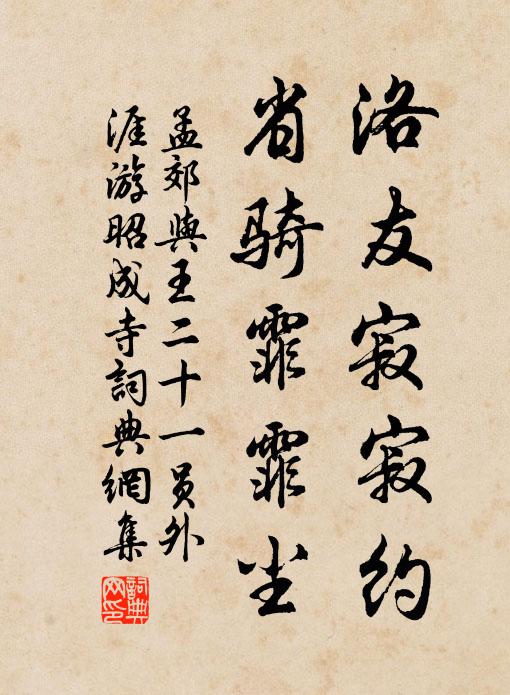 洛友寂寂约
省骑霏霏尘
孟郊與王二十一员外
涯游昭成寺詞典網集
詞典
网印